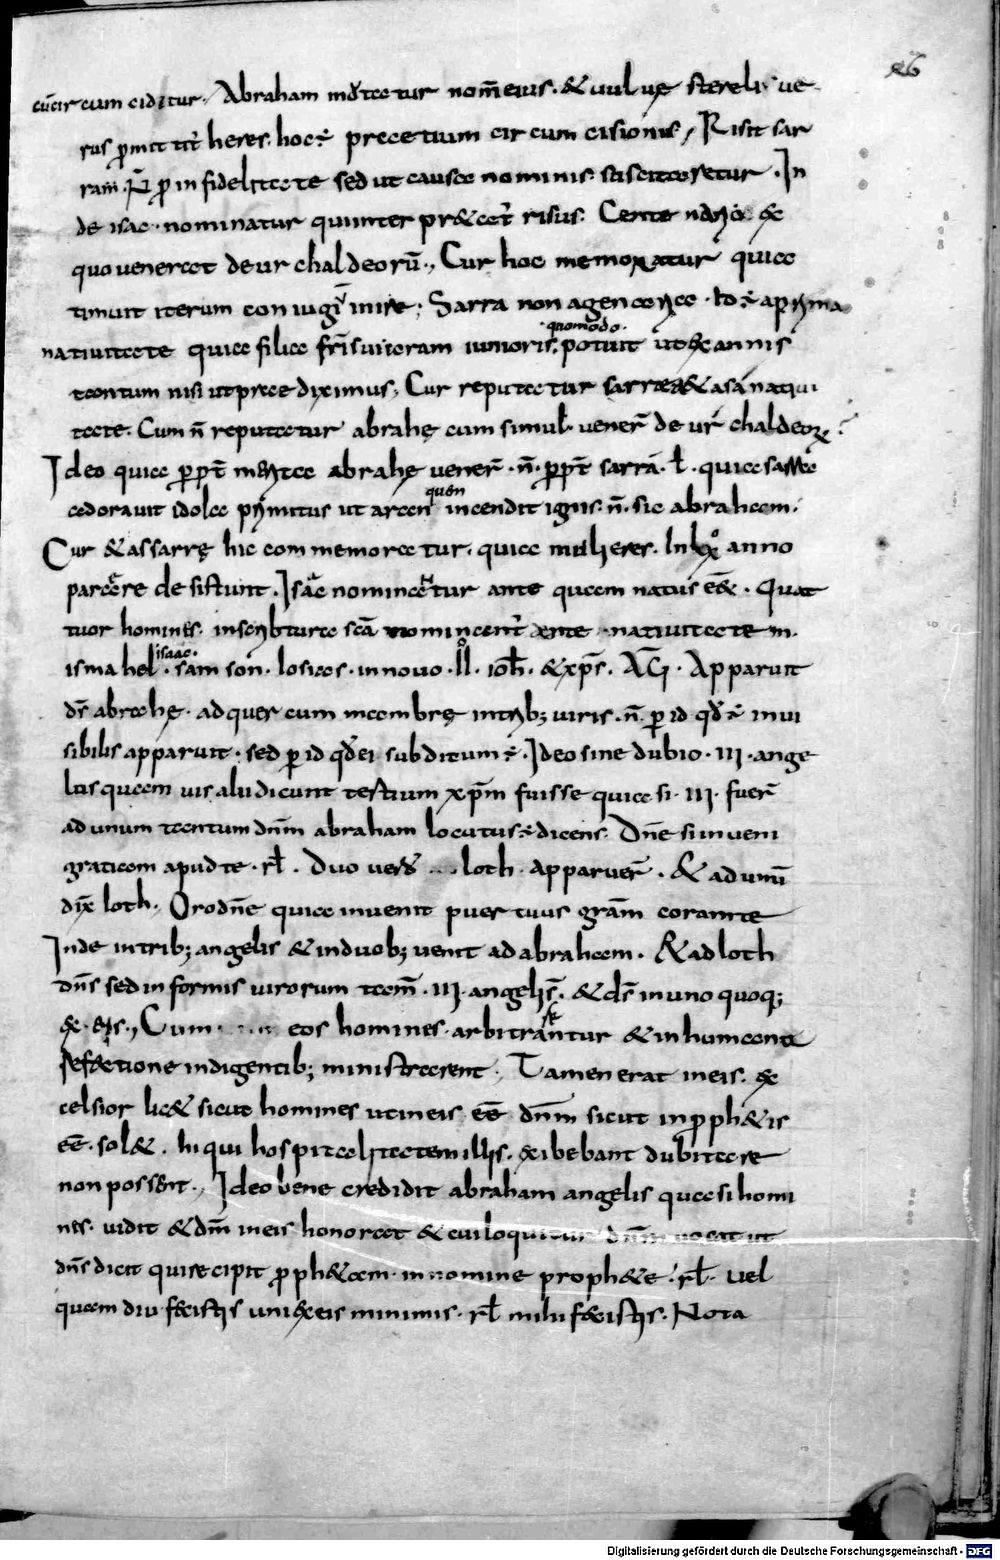 26
circumciditur. Abraham mutatur nom̄ eius. & uulue sterelis ue
rus heres. hoc precetium circumcisionis, Risit sar
ram. in fidelitate sed ut causa nominis sciscitaretur. In
de isac nominatur risus. ex
quo veneret de ur chaldeorū., Cur hoc memoratur quia
timuit iterum coniugi inire; Sarra non
natiuitate quia filia fr̄is iunioris. quomodo potuit annis
tantum nisi ut prae diximus, Cur reputatur sarrae & a sua natiui
tate. Cum n̄ reputatur abrahę cum simul uener̄ de ur chaldeor
Ideo quia abrahę uener̄. n̄. sarra. ł. quia sarra
adorauit idola primitus ut arcen quen incendit ignis. n̄. sic abraham.
Cur & as sarrę hic commemoratur. quia mulieres. In anno
parere desistunt. Isac nominatur ante quam natus ee&. Quat
tuor homines. in scribtura scā nominant̄ ante natiuitatem.
ismahel. isaac. samson. Iosias. in nouo. iōh. & xp̄s. Apparuit
ds̄ abrahę. ad quercum mambrę in trib; uiris. n̄. p id qđ inui
sibilis apparuit. sed p id qđ ei subditum. Ideo sine dubio. III. ange
los quam uis alii dicunt tertium xp̄m fuisse quia si. III. fuer̄
ad unum tantum dn̄m abraham locutus dicens. Dn̄e si inueni
gratiam apud te. rł. Duo loth apparuer̄. & ad unū
dix̄ loth. Oro dn̄e quia inuenit puer tuus grām coram te
Inde in trib; angelis & in duob; uenit ad abraham. & ad loth
dn̄s sed in formis uirorum tam̄. III. angelis. & ds̄ in uno quoq;
ex eis., Cum eos homines arbitrantur & in humana
refectione indigentib; ministrarent; Tamen erat in eis. ex
celsior lic& sicut homines ut in eis eē dn̄m sicut in pph&is
eē. sol&. hi qui hospitalitatem illis. exibebant dubitare
non possent., Ideo bene credidit abraham angelis quasi homi
nes uidit & dn̄m in eis honorat & cui loquitur dn̄m uocat ut
dn̄s dicit qui recipit pph&am in nomine proph&e. rł. Vel
quam diu fecistis uni ex eis minimis. rł mihi fecistis. Nota
Digitalisierung gefördert durch die Deutsche Forschungsgemeinschaft - DFG